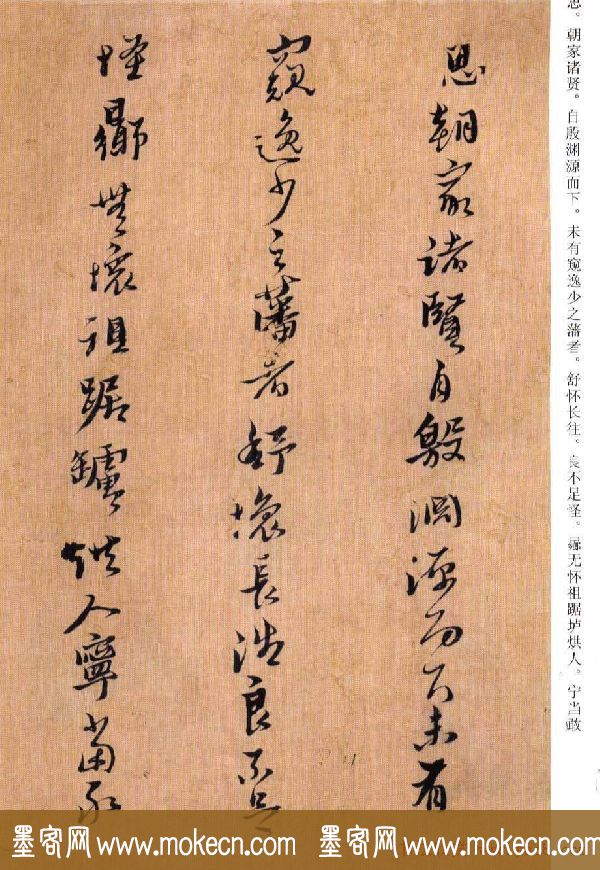 思。朝家诸贤。自殷渊源而下。未有窥逸少之藩者。舒怀长往。良不足怪。曏无怀祖踞垆烘人。宁当敢
思朝家諸賢自殷淵源而下未有
窺逸少之藩者舒懷長往良不足
怪曏無懷祖踞罏烘人寧當敢
墨客网 www.mokecn.com 墨客网 www.mokecn.com